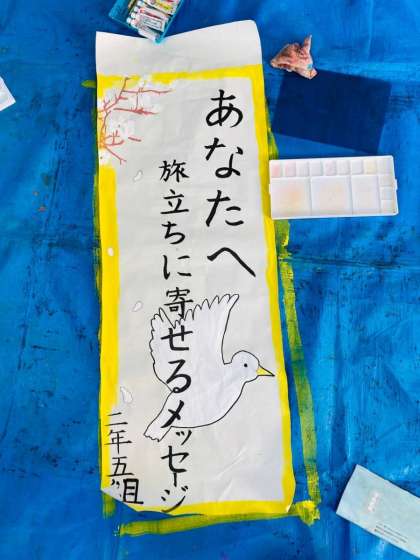 あなたへ
旅立ちに寄せるメッセージ
二年五組